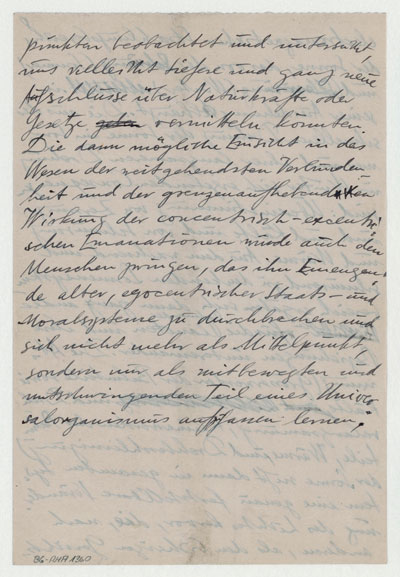 punkten beobachtet und untersucht,
uns vielleicht tiefere und ganz neue
Aufschlüsse über Naturkräfte oder
Gesetze geben vermitteln könnten.
Die dann mögliche Einsicht in das
Wesen der weitgehendsten Verbunden
heit und der grenzenaufhebenden
Wirkung der concentrisch-excentri
schen Emanationen würde auch den
Menschen zwingen, das ihn Einengen
de alter, egocentrischer Staats- und
Moralsysteme zu durchbrechen und
sich nicht mehr als Mittelpunkt,
sondern nur als mitbewegten und
mitschwingenden Teil eines Univer
salorganismus auffassen lernen.
BG-RHA 1360